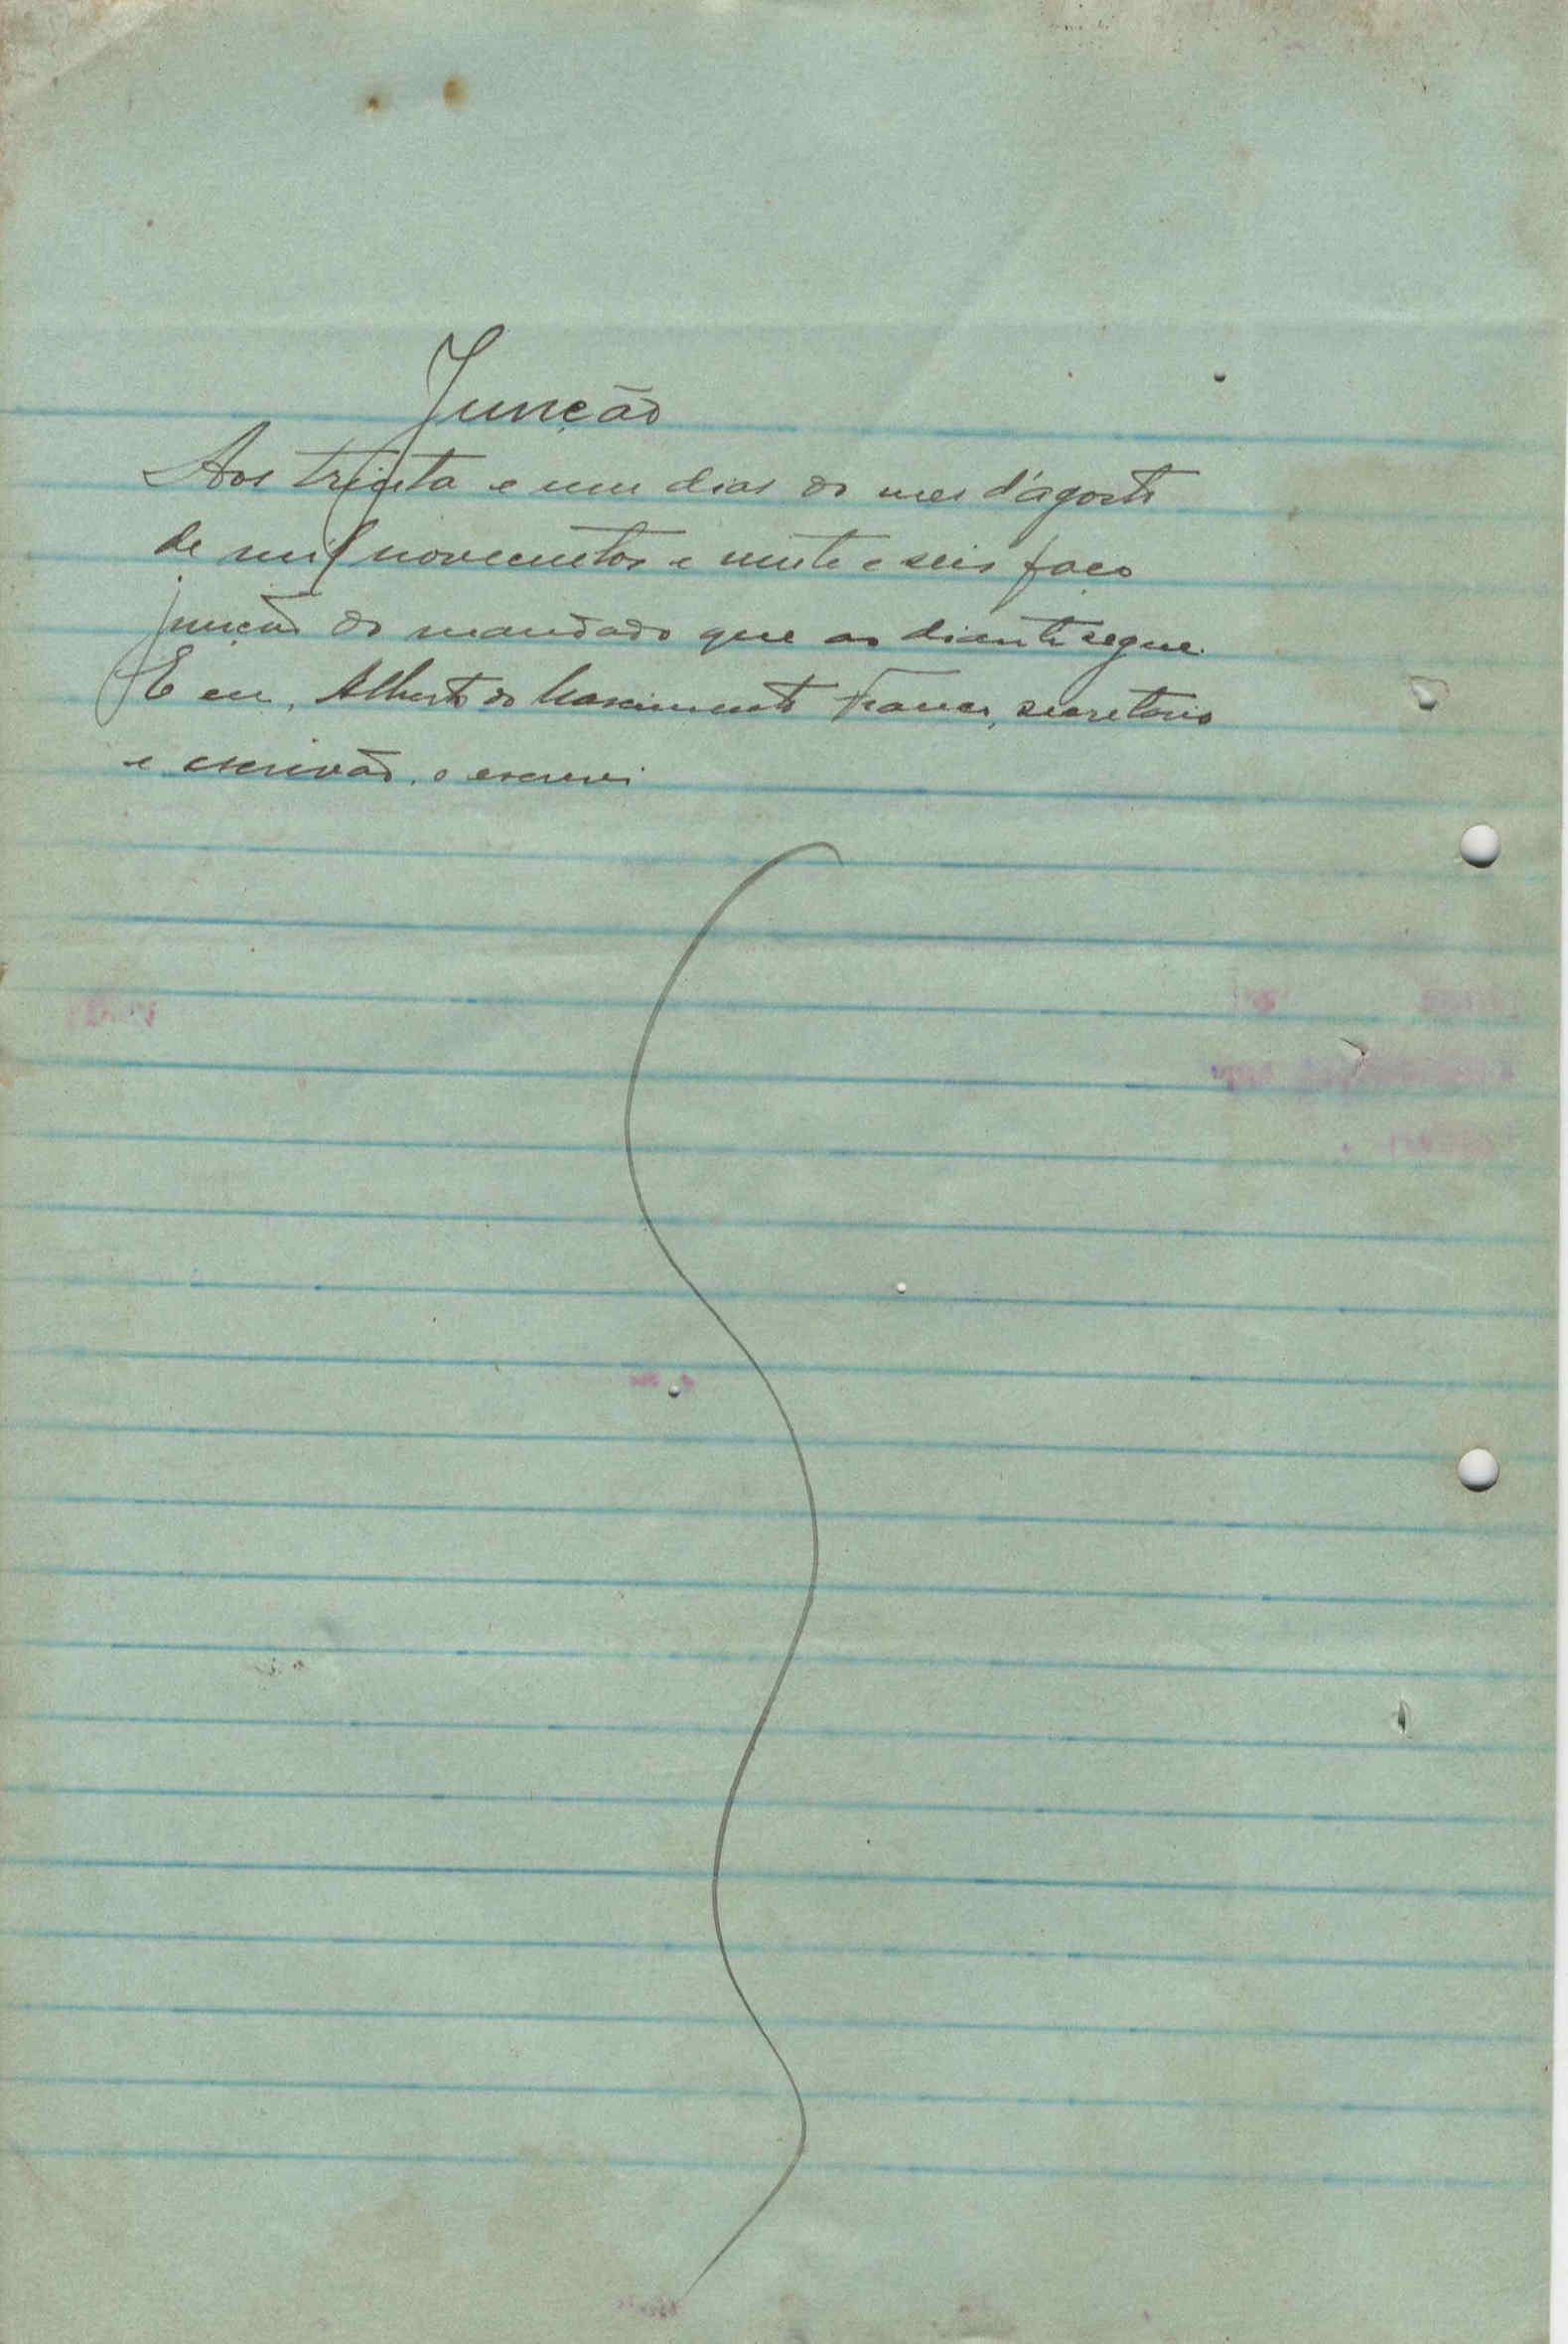 Junção
Aos trinta e um dias do mes d'agosto
de mil novecentos e vinte e seis faço
junção do mandado que ao diante segue.
E eu, Alberto do Nascimento Franco, secretario
e escrivão, o escrevi